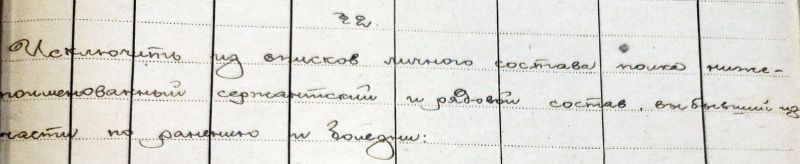 § 2.
Исключить из списков личного состава полка ниже-
поименованный сержантский и рядовой состав, выбывший из
части по ранению и болезни: